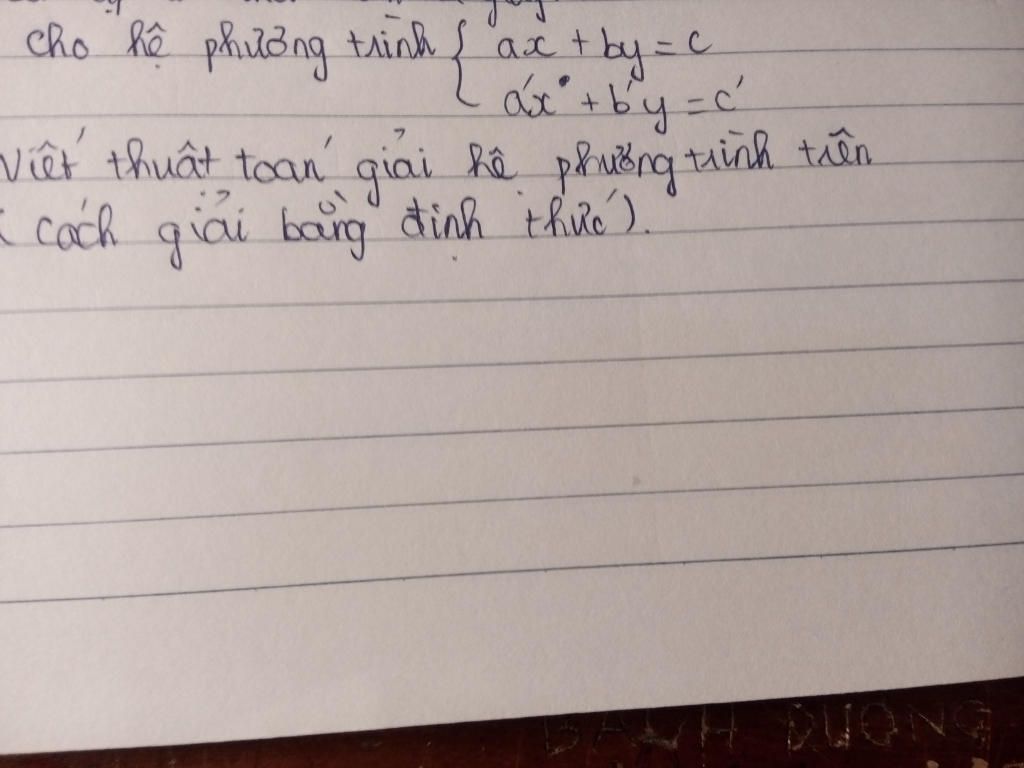 cho hệ phương trình { ax + by = c
a'x + b'y = c'
Viết thuật toán giải hệ phương trình trên
( cách giải bằng định thức ).
BẠCH DUONG